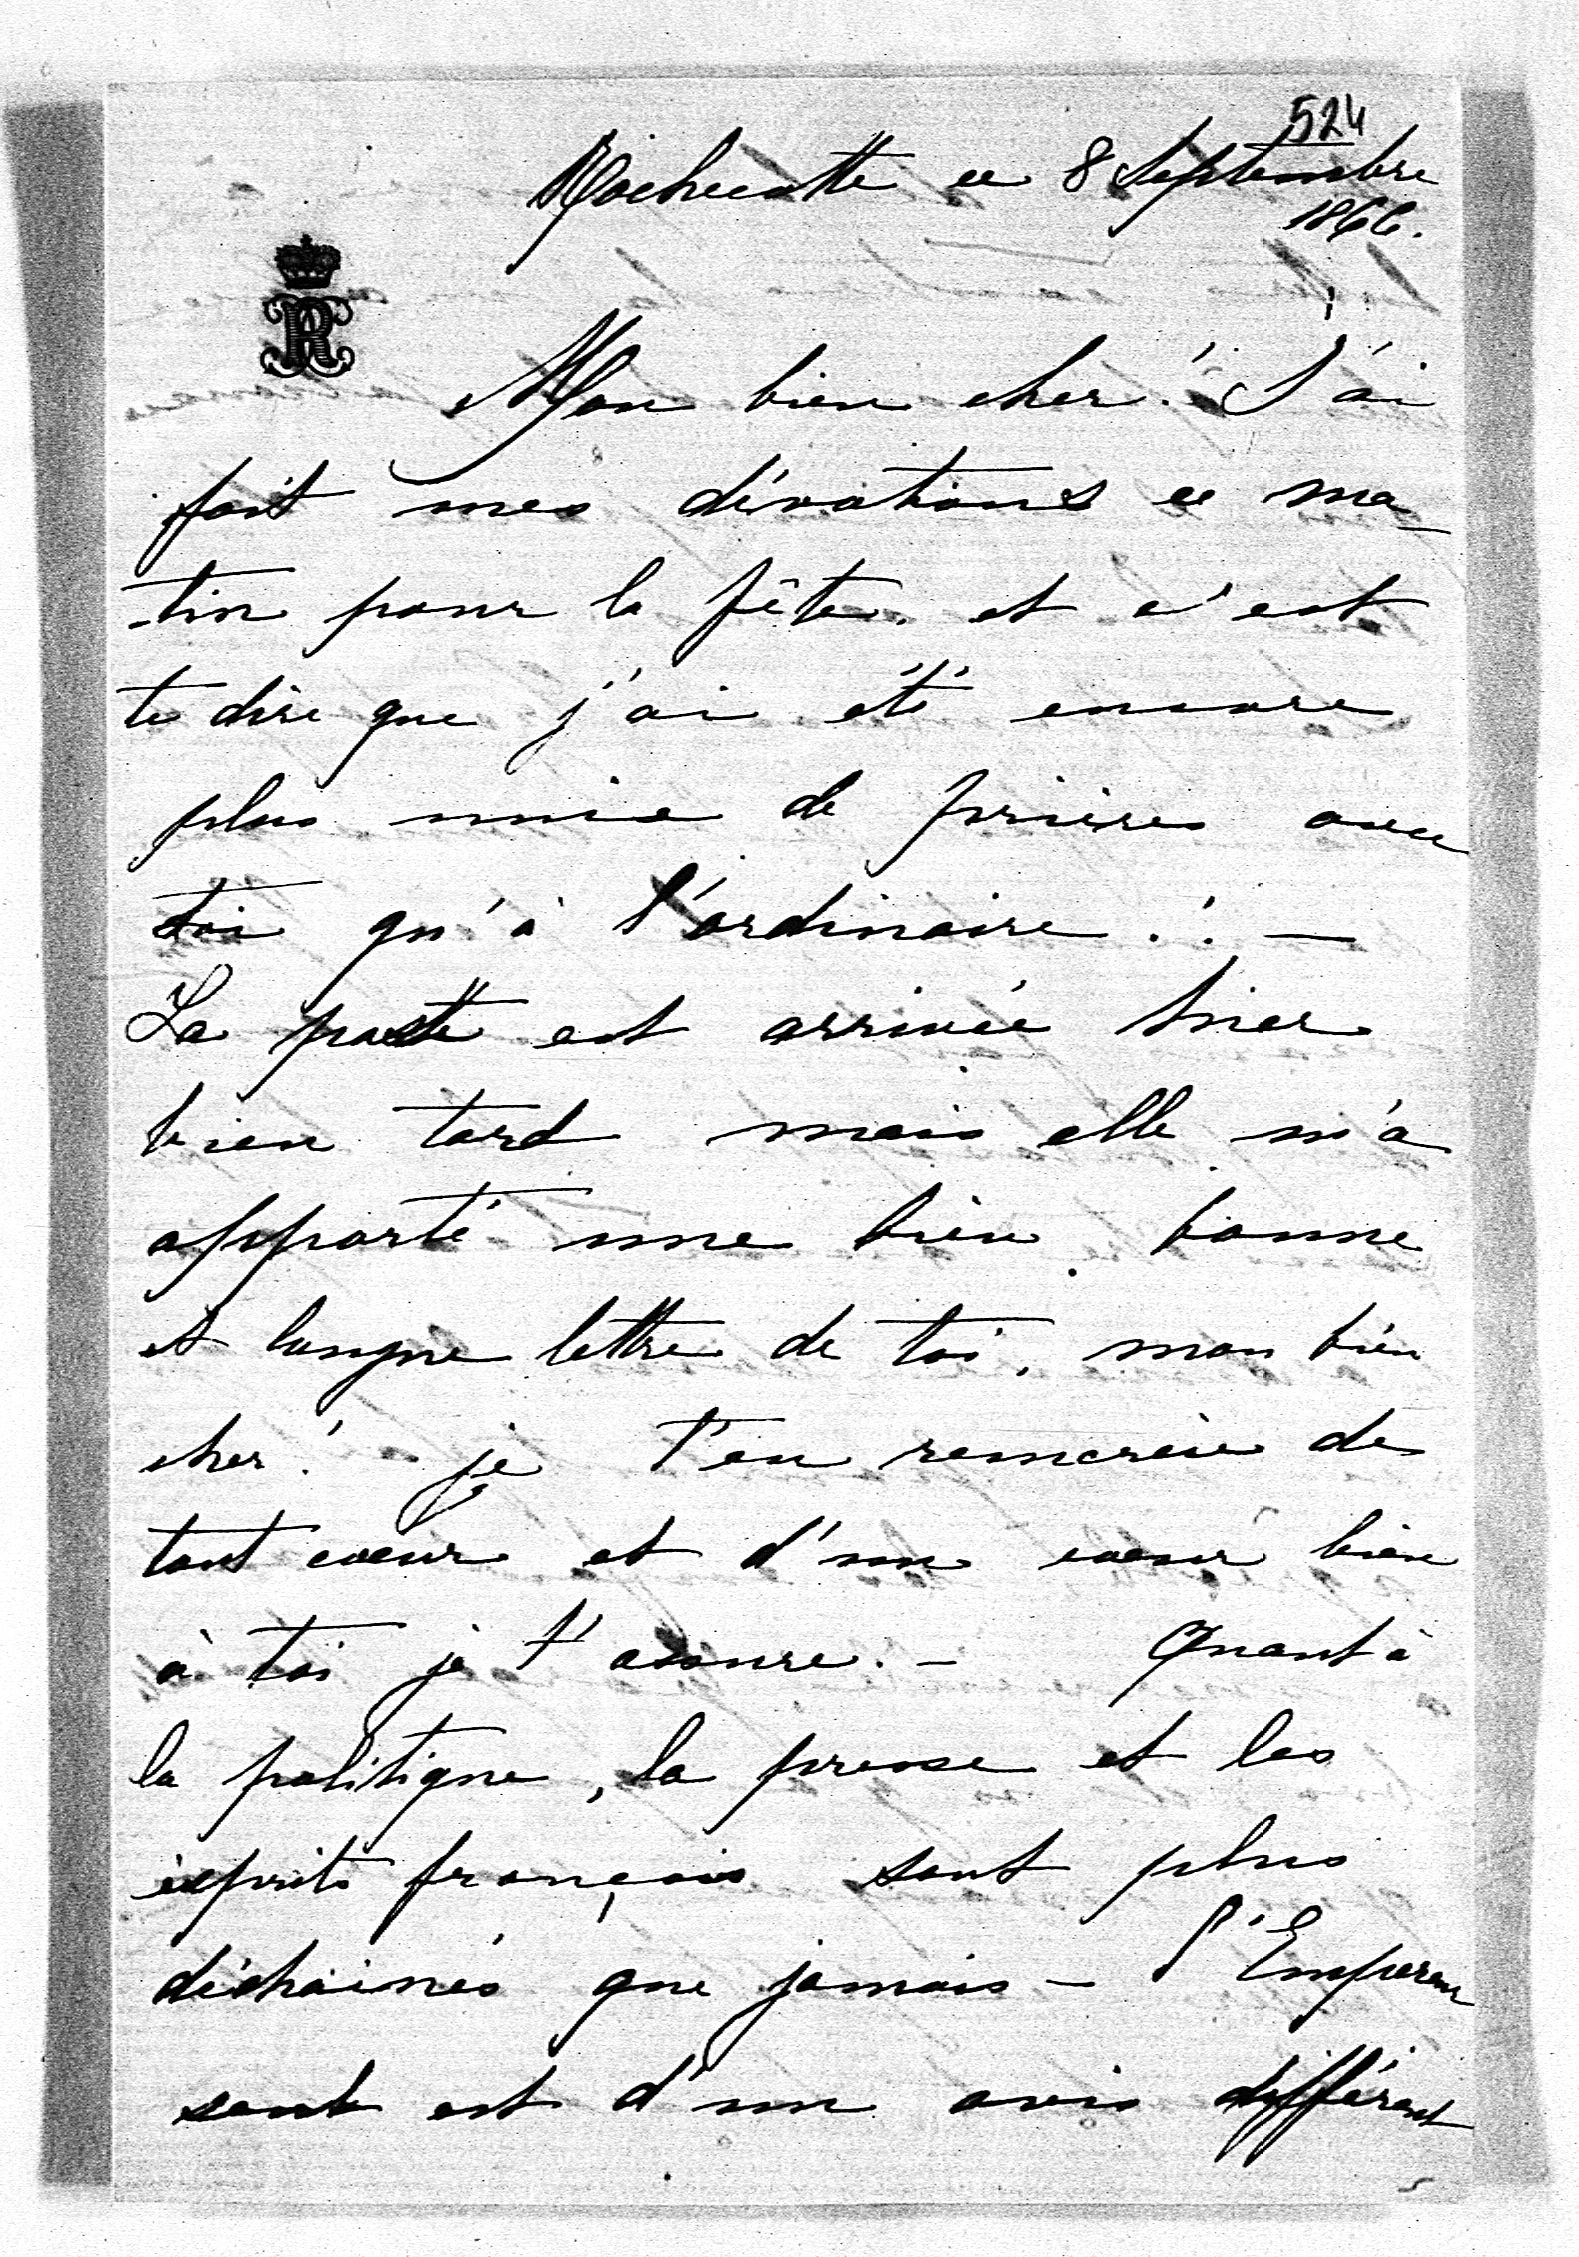 524
Rochecotte ce 8 Septembre
1866.
Mon bien cher! J'ai
fait mes dévotions ce ma-
-tin pour la fête, et c'est
te dire que j'ai été encore
plus unie de prières avec
toi qu'à l'ordinaire! –
La poste est arrivée hier
bien tard mais elle m'a
apporté une bien bonne
et longue lettre de toi, mon bien
cher! je t'en remercie de
tout coeur et d'un coeur bien
à toi je t'assure. – Quant à
la politique, la presse et les
esprits français sont plus
déchainés que jamais – l'Empereur
seul est d'un avis différent